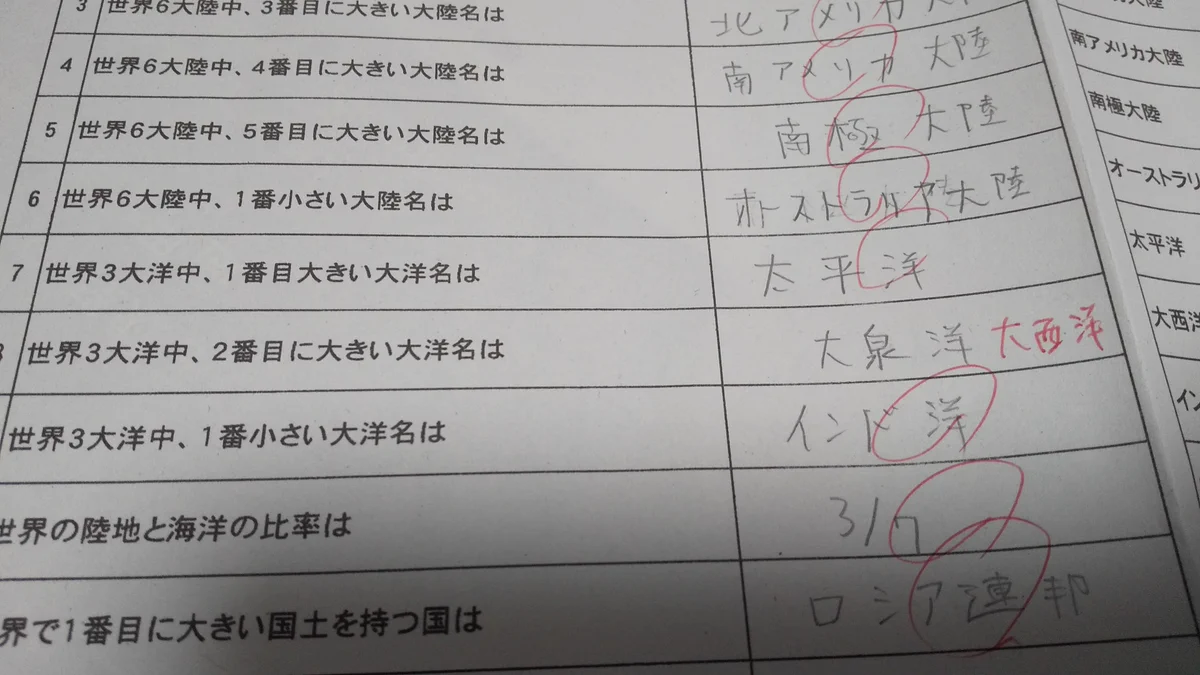 3 世界6大陸中、3番目に大きい大陸名は 北アメリカ
4 世界6大陸中、4番目に大きい大陸名は 南アメリカ大陸
5 世界6大陸中、5番目に大きい大陸名は 南極大陸
6 世界6大陸中、1番小さい大陸名は オーストラリア大陸
7 世界3大洋中、1番目大きい大洋名は 太平洋
世界3大洋中、2番目に大きい大洋名は 大泉洋 大西洋
世界3大洋中、1番小さい大洋名は インド洋
世界の陸地と海洋の比率は 3/7
界で1番目に大きい国土を持つ国は ロシア連邦
大陸
南アメリカ大陸
南極大陸
オーストラリ
太平洋
大西洋
イン